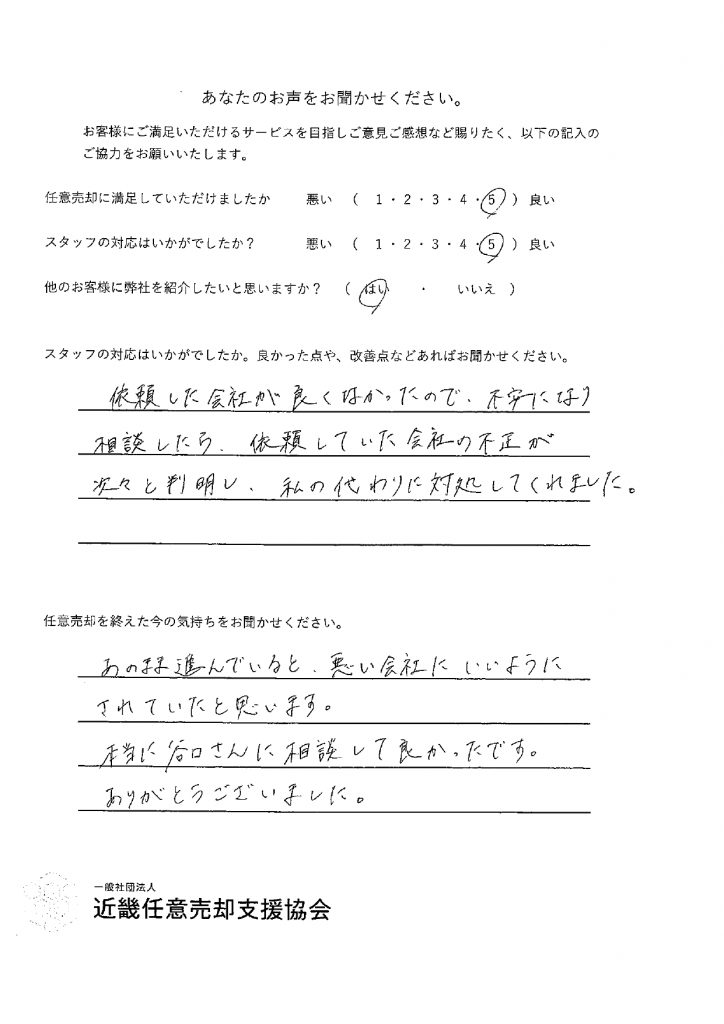 あなたのお声をお聞かせください。
お客様にご満足いただけるサービスを目指しご意見ご感想など賜りたく、以下の記入の
ご協力をお願いいたします。
任意売却に満足していただけましたか 悪い ( 1・2・3・4・5 ) 良い
スタッフの対応はいかがでしたか？ 悪い ( 1・2・3・4・5 ) 良い
他のお客様に弊社を紹介したいと思いますか？ ( はい ・ いいえ )
スタッフの対応はいかがでしたか。良かった点や、改善点などあればお聞かせください。
依頼した会社が良くなかったので、不安になり
相談したら、依頼していた会社の不正が
次々と判明し、私の代わりに対処してくれました。
任意売却を終えた今の気持ちをお聞かせください。
あのまま進んでいると、悪い会社にいいように
されていたと思います。
本当に谷口さんに相談して良かったです。
ありがとうございました。
一般社団法人
近畿任意売却支援協会